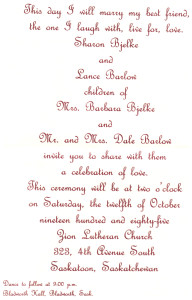 This day I will marry my best friend,
the one I laugh with, live for, love.
Sharon Bjelke
and
Lance Barlow
children of
Mrs. Barbara Bjelke
and
Mr. and Mrs. Dale Barlow
invite you to share with them
a celebration of love.
This ceremony will be at two o'clock
on Saturday, the twelfth of October
nineteen hundred and eighty-five
Zion Lutheran Church
323, 4th Avenue South
Saskatoon, Saskatchewan
Dance to follow at 9:00 p.m.
Bladworth Hall, Bladworth, Sask.